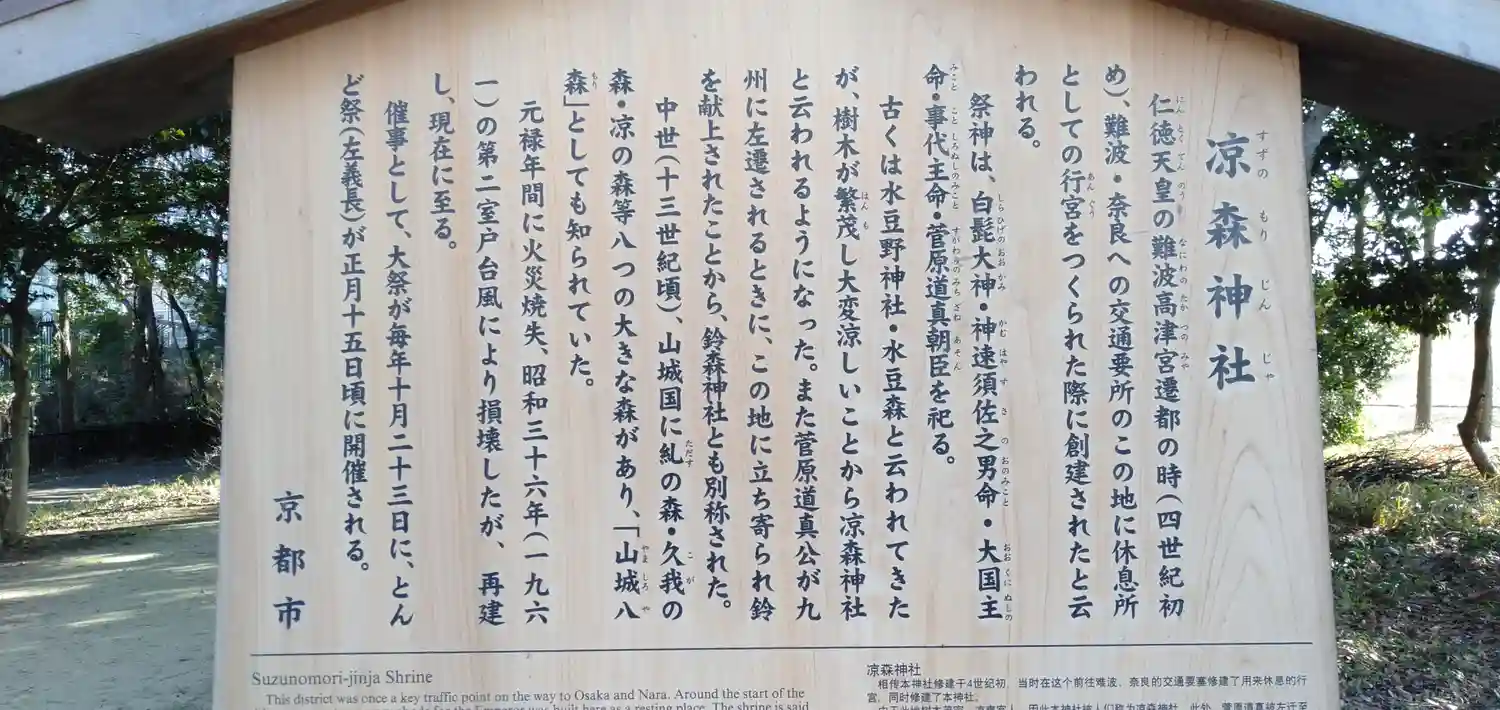 凉森神社
仁徳天皇の難波高津宮遷都の時(四世紀初
め)、難波・奈良への交通要所のこの地に休息所
としての行宮をつくられた際に創建されたと云
われる。
祭神は、白髭大神・神速須佐之男命・大国主
命・事代主命・菅原道真朝臣を祀る。
古くは水豆野神社・水豆森と云われてきた
が、樹木が繁茂し大変涼しいことから凉森神社
と云われるようになった。また菅原道真公が九
州に左遷されるときに、この地に立ち寄られ鈴
を献上されたことから、鈴森神社とも別称された。
中世(十三世紀頃)、山城国に糺の森・久我の
森・凉の森等八つの大きな森があり、「山城八
森」としても知られていた。
元禄年間に火災焼失、昭和三十六年(一九六
一)の第二室戸台風により損壊したが、再建
し、現在に至る。
催事として、大祭が毎年十月二十三日に、とん
ど祭(左義長)が正月十五日頃に開催される。
京都市
Suzunomori-jinja Shrine
This district was once a key traffic point on the way to Osaka and Nara. Around the start of the
for the Emperor was built here as a resting place. The shrine is said
凉森神社
相传本神社修建于4世纪初，当时在这个前往难波、奈良的交通要塞修建了用来休息的行
宫，同时修建了本神社。